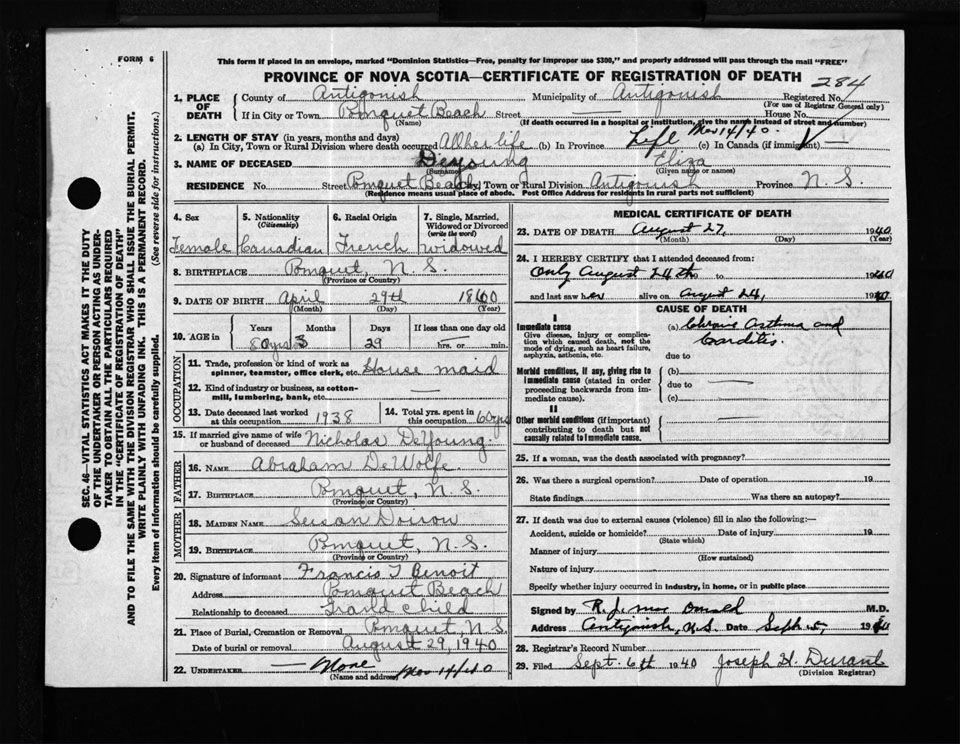 FORM 6
This form if placed in an envelope, marked "Dominion Statistics—Free, penalty for improper use $300," and properly addressed will pass through the mail "FREE"
PROVINCE OF NOVA SCOTIA—CERTIFICATE OF REGISTRATION OF DEATH
284
1. PLACE OF DEATH County of Antigonish Municipality of Antigonish Registered No.
(For use of Registrar General only)
If in City or Town Pomquet Beach Street House No.
(Name) (If death occurred in a hospital or institution, give the name instead of street and number)
2. LENGTH OF STAY (in years, months and days)
(a) In City, Town or Rural Division where death occurred All her life (b) In Province Life Nov 14/40. (c) In Canada (if immigrant) —
3. NAME OF DECEASED DeYoung Eliza
(Surname) (Given name or names)
RESIDENCE No. Street Pomquet Beach City, Town or Rural Division Antigonish Province N. S
(Residence means usual place of abode. Post Office Address for residents in rural parts not sufficient)
4. Sex 5. Nationality (Citizenship) 6. Racial Origin 7. Single, Married, Widowed or Divorced (write the word)
Female Canadian French Widowed
8. BIRTHPLACE Pomquet, N. S.
(Province or Country)
9. DATE OF BIRTH April 29th 1860
(Month) (Day) (Year)
10. AGE in Years Months Days If less than one day old
80 yrs 3 29 hrs. or min.
OCCUPATION
11. Trade, profession or kind of work as spinner, teamster, office clerk, etc. House maid
12. Kind of industry or business, as cotton-mill, lumbering, bank, etc. —
13. Date deceased last worked at this occupation 1938 14. Total yrs. spent in this occupation 60 yrs
15. If married give name of wife or husband of deceased Nicholas DeYoung.
FATHER
16. NAME Abraham DeWolfe
17. BIRTHPLACE Pomquet, N. S.
(Province or Country)
MOTHER
18. MAIDEN NAME Susan Doiron
19. BIRTHPLACE Pomquet, N. S.
(Province or Country)
20. Signature of informant Francis T Benoit
Address Pomquet Beach
Relationship to deceased Grand child
21. Place of Burial, Cremation or Removal Pomquet, N. S.
Date of burial or removal August 29, 1940
22. UNDERTAKER — None Nov 14/40
(Name and address)
MEDICAL CERTIFICATE OF DEATH
23. DATE OF DEATH August 27, 1940
(Month) (Day) (Year)
24. I HEREBY CERTIFY that I attended deceased from:
Only August 24th to 1940
and last saw her alive on August 24, 1940
CAUSE OF DEATH
I
Immediate cause
Give disease, injury or complication which caused death, not the mode of dying, such as heart failure, asphyxia, asthenia, etc.
(a) Chronic Asthma and Carditis.
due to
Morbid conditions, if any, giving rise to immediate cause (stated in order proceeding backwards from immediate).
(b) —
due to —
(c) —
II
Other morbid conditions (if important) contributing to death but not causally related to immediate cause.
25. If a woman, was the death associated with pregnancy?
26. Was there a surgical operation? Date of operation 19
State findings Was there an autopsy?
27. If death was due to external causes (violence) fill in also the following:—
Accident, suicide or homicide? Date of injury 19
(State which)
Manner of injury
(How sustained)
Nature of injury
Specify whether injury occurred in industry, in home, or in public place
Signed by R. J. MacDonald M.D.
Address Antigonish, N.S. Date Sept 5, 1940
28. Registrar's Record Number
29. Filed Sept. 6th 1940 Joseph H. Durant
(Division Registrar)
SEC. 46—VITAL STATISTICS ACT MAKES IT THE DUTY
OF THE UNDERTAKER OR PERSON ACTING AS UNDER-
TAKER TO OBTAIN ALL THE PARTICULARS REQUIRED
IN THE "CERTIFICATE OF REGISTRATION OF DEATH"
AND TO FILE THE SAME WITH THE DIVISION REGISTRAR WHO SHALL ISSUE THE BURIAL PERMIT.
WRITE PLAINLY WITH UNFADING INK. THIS IS A PERMANENT RECORD.
Every item of information should be carefully supplied. (See reverse side for instructions.)